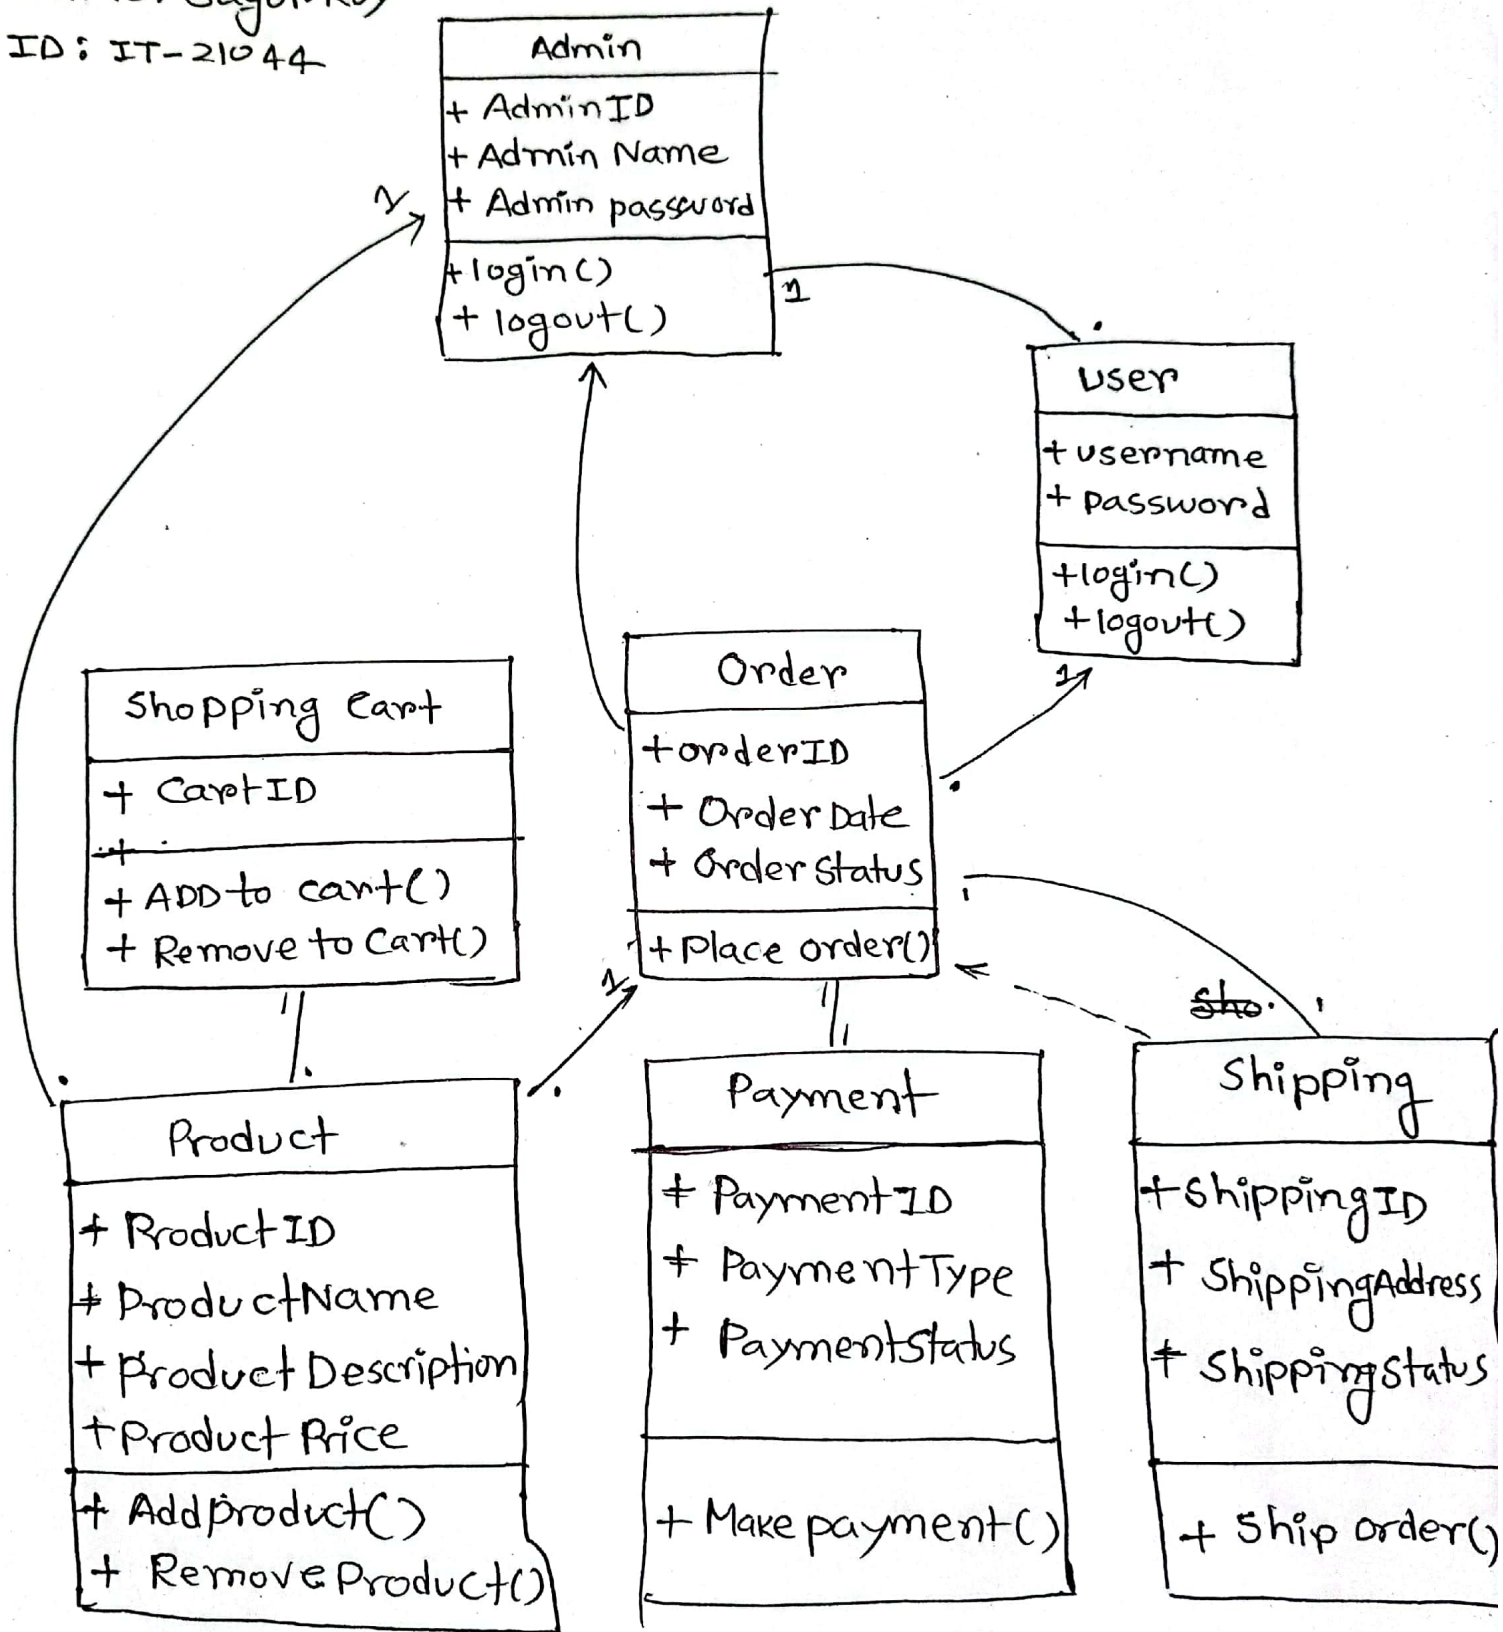 ID: IT-21044
Admin
+ AdminID
+ Admin Name
+ Admin password
+ login()
+ logout()
1
1
user
+ username
+ password
+ login()
+ logout()
1
Shopping Cart
+ CartID
+
+ ADD to cart()
+ Remove to Cart()
Order
+ orderID
+ Order Date
+ Order Status
+ Place order()
1
1
1
1
1
Sho
1
Product
+ ProductID
+ ProductName
+ Product Description
+ Product Price
+ Addproduct()
+ Remove Product()
Payment
+ PaymentID
+ PaymentType
+ PaymentStatus
+ Make payment()
Shipping
+ ShippingID
+ ShippingAddress
+ ShippingStatus
+ Ship order()